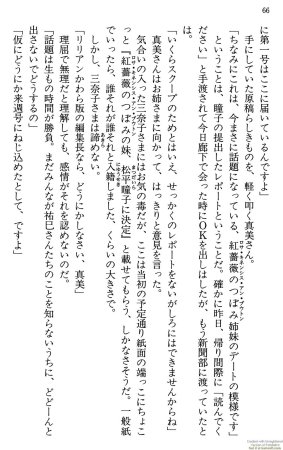 66
に第一号はここに届いているんですよ」
手にしていた原稿らしきものを、軽く叩く真美さん。
「ちなみにこれは、今まさに話題になっている、紅薔薇のつぼみ姉妹のデートの模様です」
ということは、瞳子の提出したレポートということだ。確かに昨日、帰り間際に「読んでく
ださい」と手渡されて今日廊下で会った時にOKを出しはしたが、もう新聞部に渡っていたと
は。
「いくらスクープのためとはいえ、せっかくのレポートをないがしろにはできませんからね」
真美さんはお姉さまに向かって、はっきりと意見を言った。
気合いの入った三奈子さまにはお気の毒だが、ここは当初の予定通り紙面の端っこにちょこ
っと『紅薔薇のつぼみの妹、松平瞳子に決定』と載せてもらう、しかなさそうだ。一般紙
でいったら、誰それが誰それと入籍しました、くらいの大きさで。
しかし、三奈子さまは諦めない。
「リリアンかわら版の編集長なら、どうにかしなさい、真美」
理屈で無理だと理解しても、感情がそれを認めないのだ。
「話題は生もの時間が勝負。まだみんなが祐巳さんたちのことを知らないうちに、どどーんと
出さないでどうするの」
「仮にどうにか来週号にねじ込めたとして、ですよ」